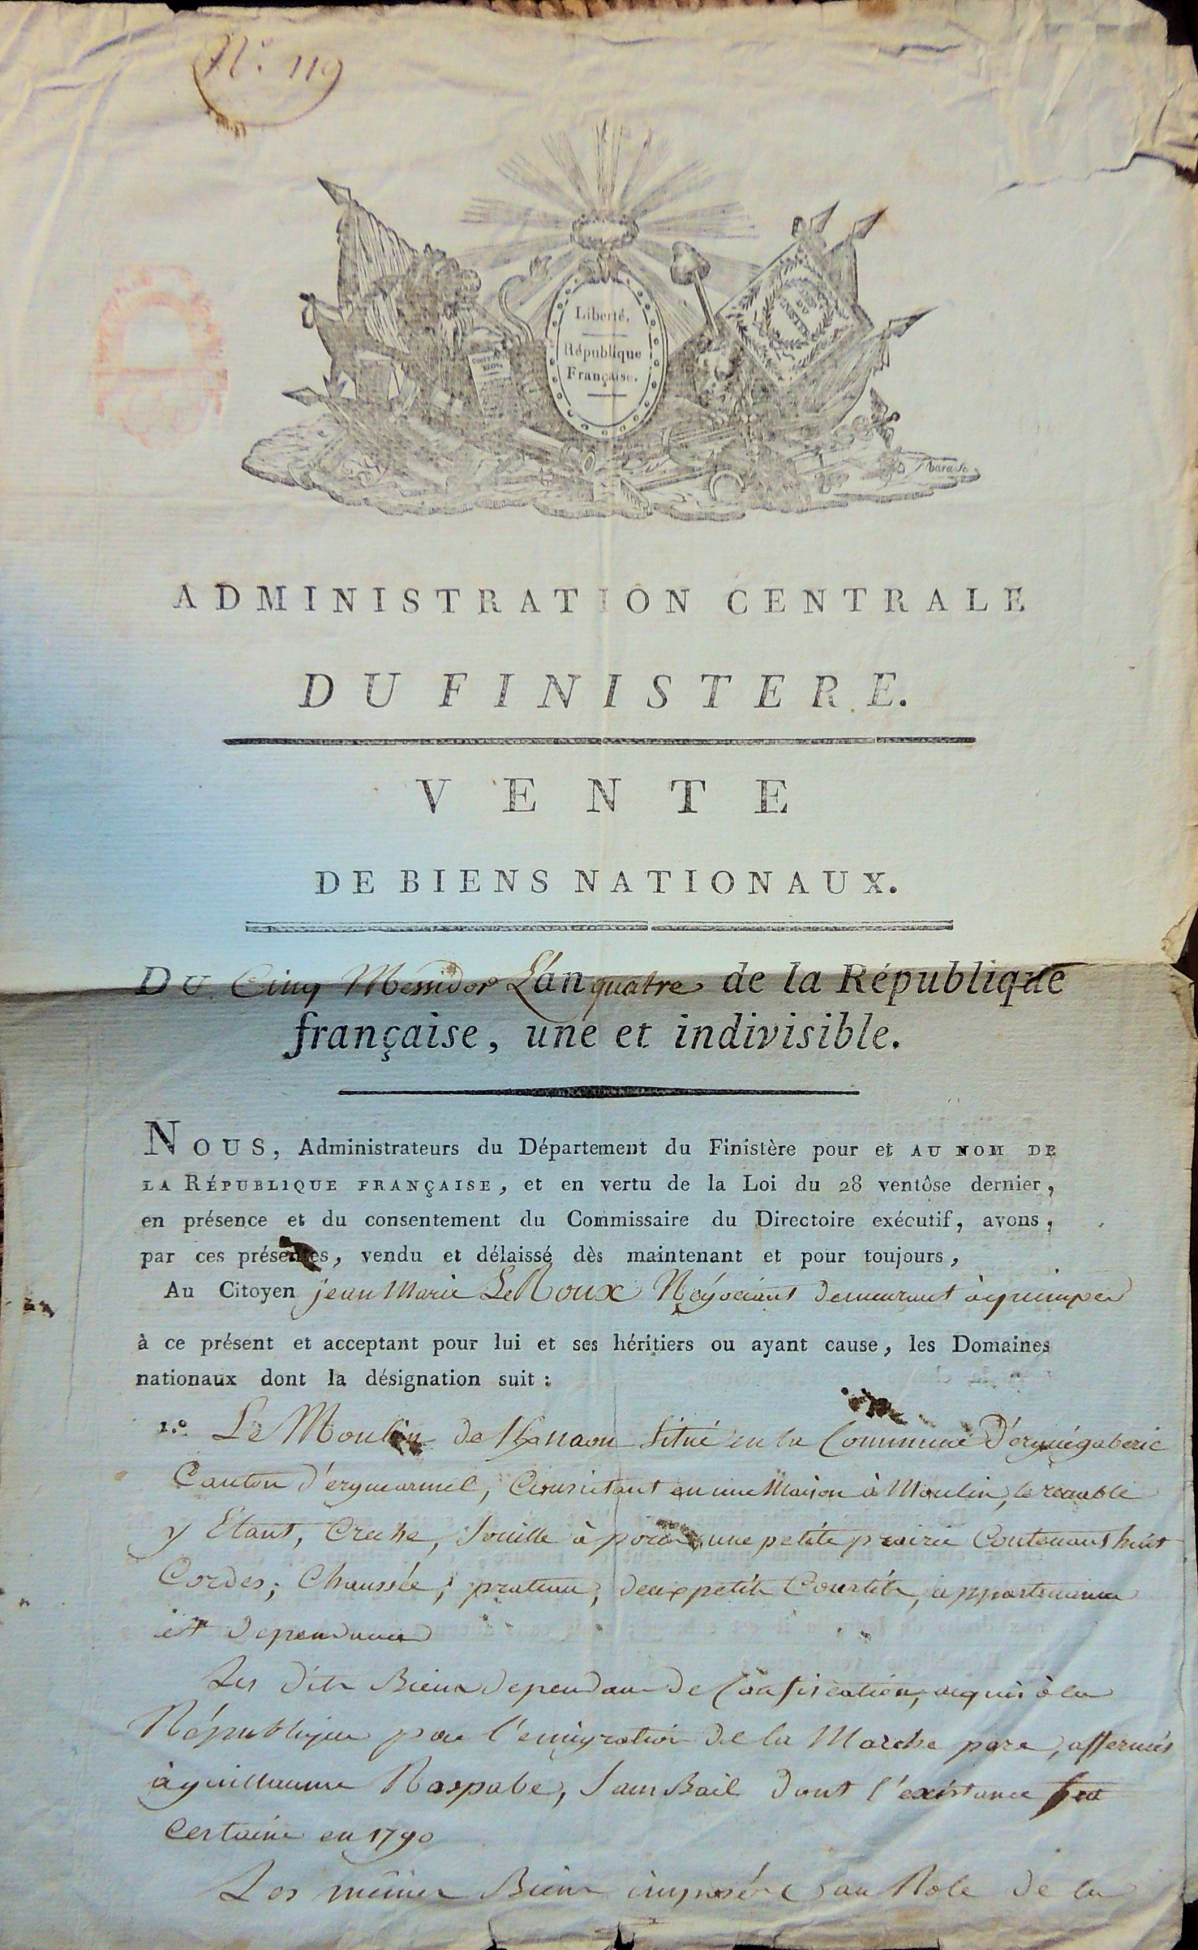 N.° 119
Liberté,
République
Française.
ADMINISTRATION CENTRALE
DU FINISTERE.
VENTE
DE BIENS NATIONAUX.
DU Cinq Messidor L'an quatre de la République
française, une et indivisible.
NOUS, Administrateurs du Département du Finistère pour et AU NOM DE
LA RÉPUBLIQUE FRANÇAISE, et en vertu de la Loi du 28 ventôse dernier,
en présence et du consentement du Commissaire du Directoire exécutif, avons,
par ces présentes, vendu et délaissé dès maintenant et pour toujours,
Au Citoyen jean Marie Le Roux Négociant demeurant à quimper
à ce présent et acceptant pour lui et ses héritiers ou ayant cause, les Domaines
nationaux dont la désignation suit :
1.° Le Moulin de situé en la Commune D'erguégaberic
Canton d'erguearmel, Consistant en une Maison à Moulin, le
y Etant, Creche, Souille à porc, une petite prairie Contenant huit
Cordes; Chaussée, deux petits Courtils, appartenances
et dependances
Les dits Biens dependans de Confiscation, acquis à la
République par l'emigration de la Marche pere, affermés
à guillaume Raspabe, sans Bail dont l'existance
Certaine en 1790
Les mêmes Biens imposés au Role de la